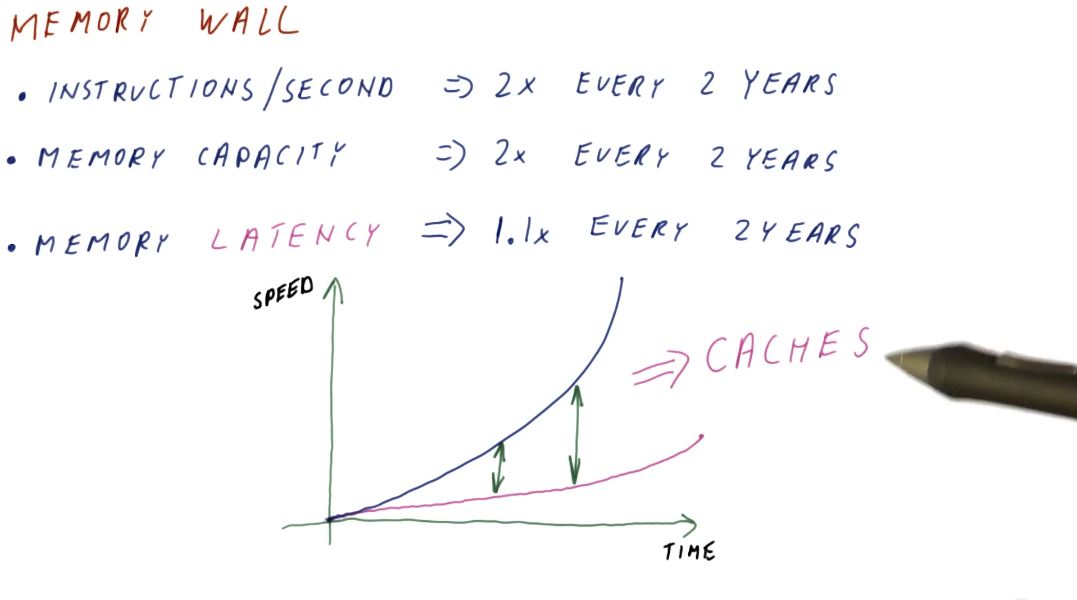 MEMORY WALL
• INSTRUCTIONS/SECOND ⇒ 2x EVERY 2 YEARS
• MEMORY CAPACITY ⇒ 2x EVERY 2 YEARS
• MEMORY LATENCY ⇒ 1.1x EVERY 2 YEARS
SPEED
⇒ CACHES
TIME